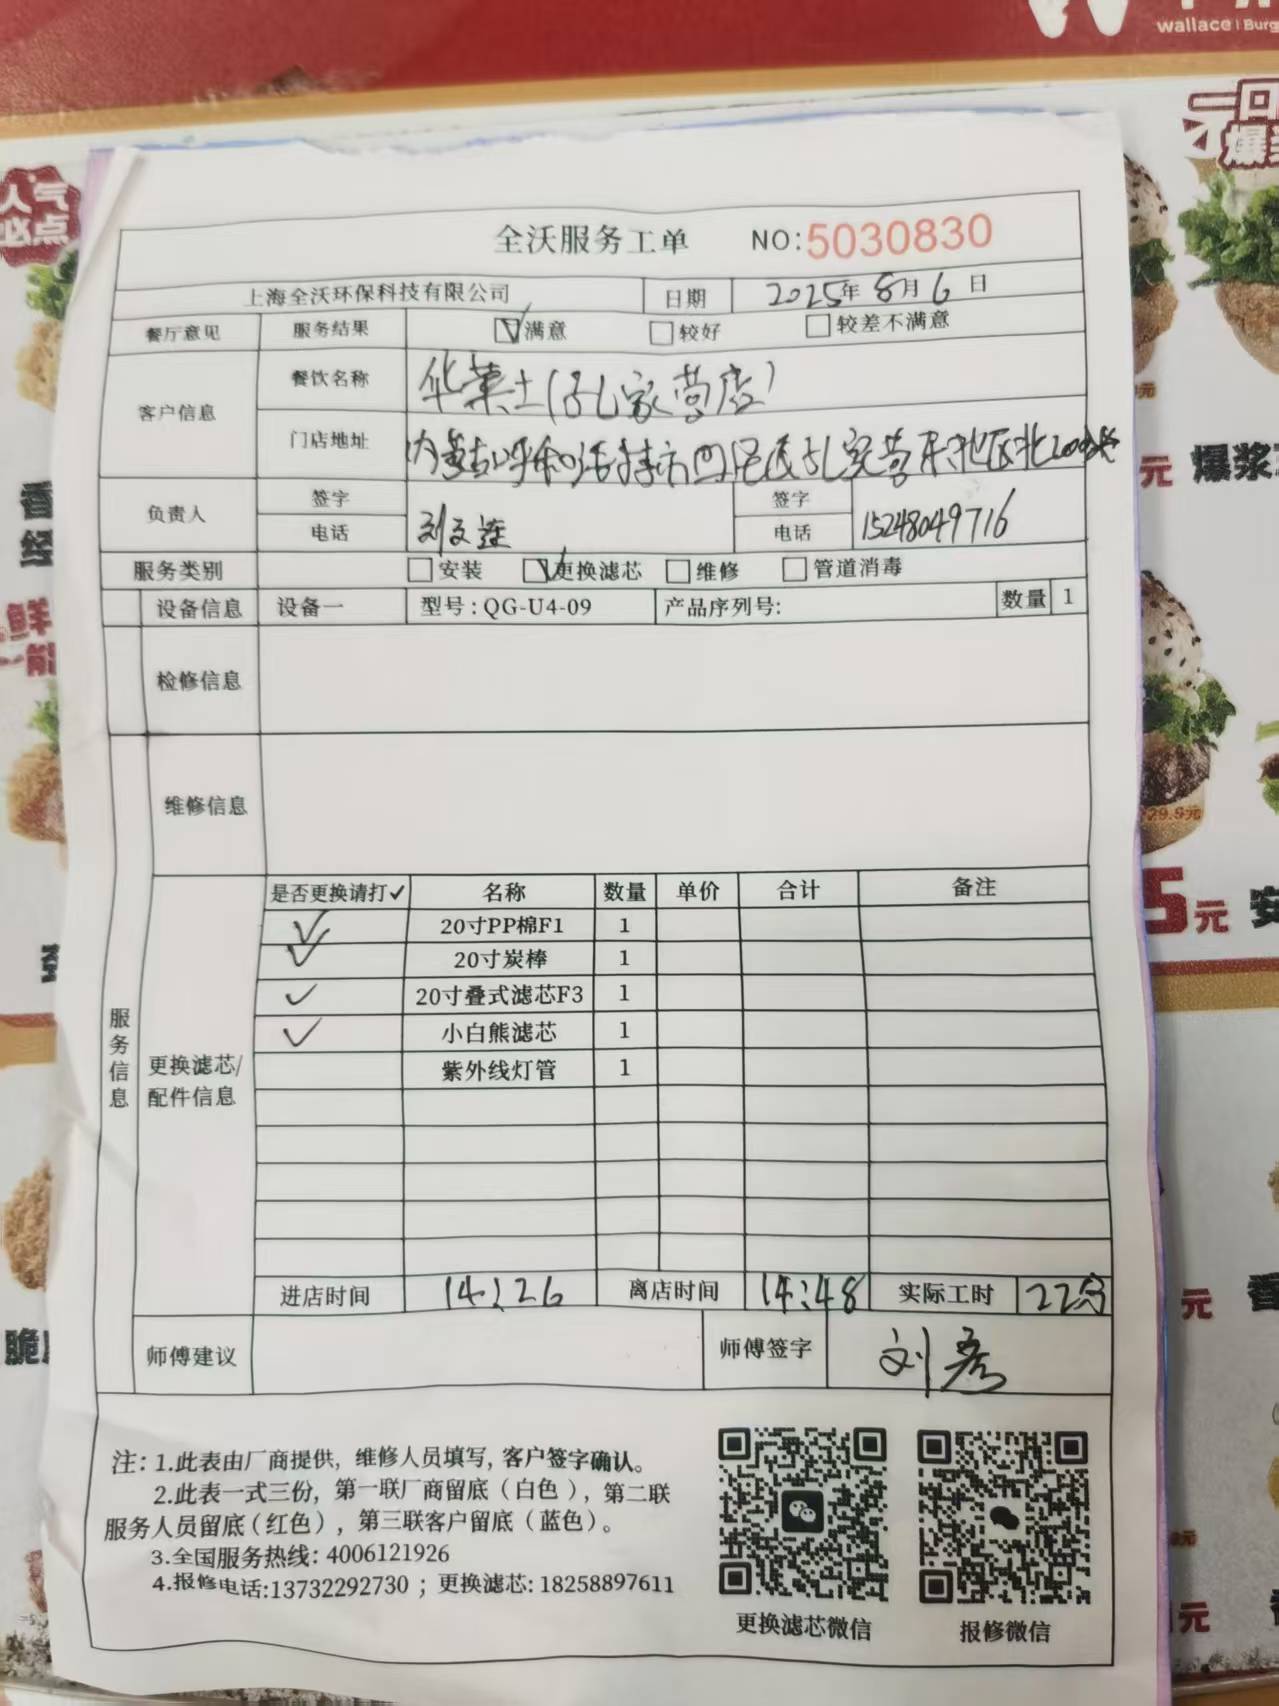 wallace | Burg
一口
爆浆
人气
必点
全沃服务工单 NO:5030830
上海全沃环保科技有限公司 日期 2025年8月6日
餐厅意见 服务结果 满意 较好 较差不满意
客户信息 餐饮名称 华莱士(孔家营店)
门店地址 内蒙古呼和浩特市回民区孔家营东北区北200米
负责人 签字 签字
电话 刘文莲 电话 15248049716
服务类别 安装 更换滤芯 维修 管道消毒
设备信息 设备一 型号:QG-U4-09 产品序列号: 数量 1
检修信息
维修信息
服务信息
更换滤芯/
配件信息
是否更换请打✓ 名称 数量 单价 合计 备注
✓ 20寸PP棉F1 1
✓ 20寸炭棒 1
✓ 20寸叠式滤芯F3 1
✓ 小白熊滤芯 1
紫外线灯管 1
进店时间 14:26 离店时间 14:48 实际工时 22分
师傅建议 师傅签字 刘彦
注:1.此表由厂商提供,维修人员填写,客户签字确认。
2.此表一式三份,第一联厂商留底(白色),第二联
服务人员留底(红色),第三联客户留底(蓝色)。
3.全国服务热线:4006121926
4.报修电话:13732292730;更换滤芯:18258897611
更换滤芯微信 报修微信
元 爆浆
29.9元
5元
元
元